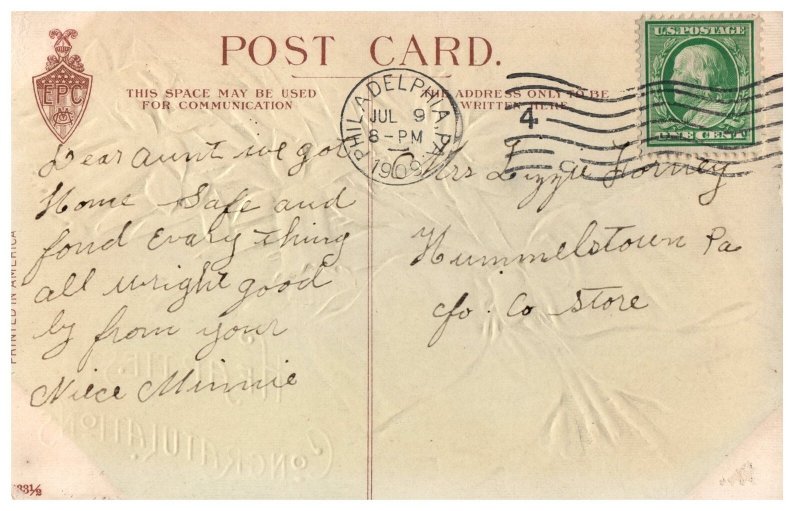 POST CARD.
EPC
THIS SPACE MAY BE USED
FOR COMMUNICATION
THE ADDRESS ONLY TO BE
WRITTEN HERE
PHILADELPHIA, PA.
JUL 9
8-PM
1909
4
U.S. POSTAGE
ONE CENT
Dear Aunt we got
Home Safe and
fond Evary thing
all wright good
by from your
Niece Minnie
Mrs Lizzie Forney
Hummelstown Pa
c/o. Co Store
PRINTED IN AMERICA
HEARTIEST
CONGRATULATIONS
33½